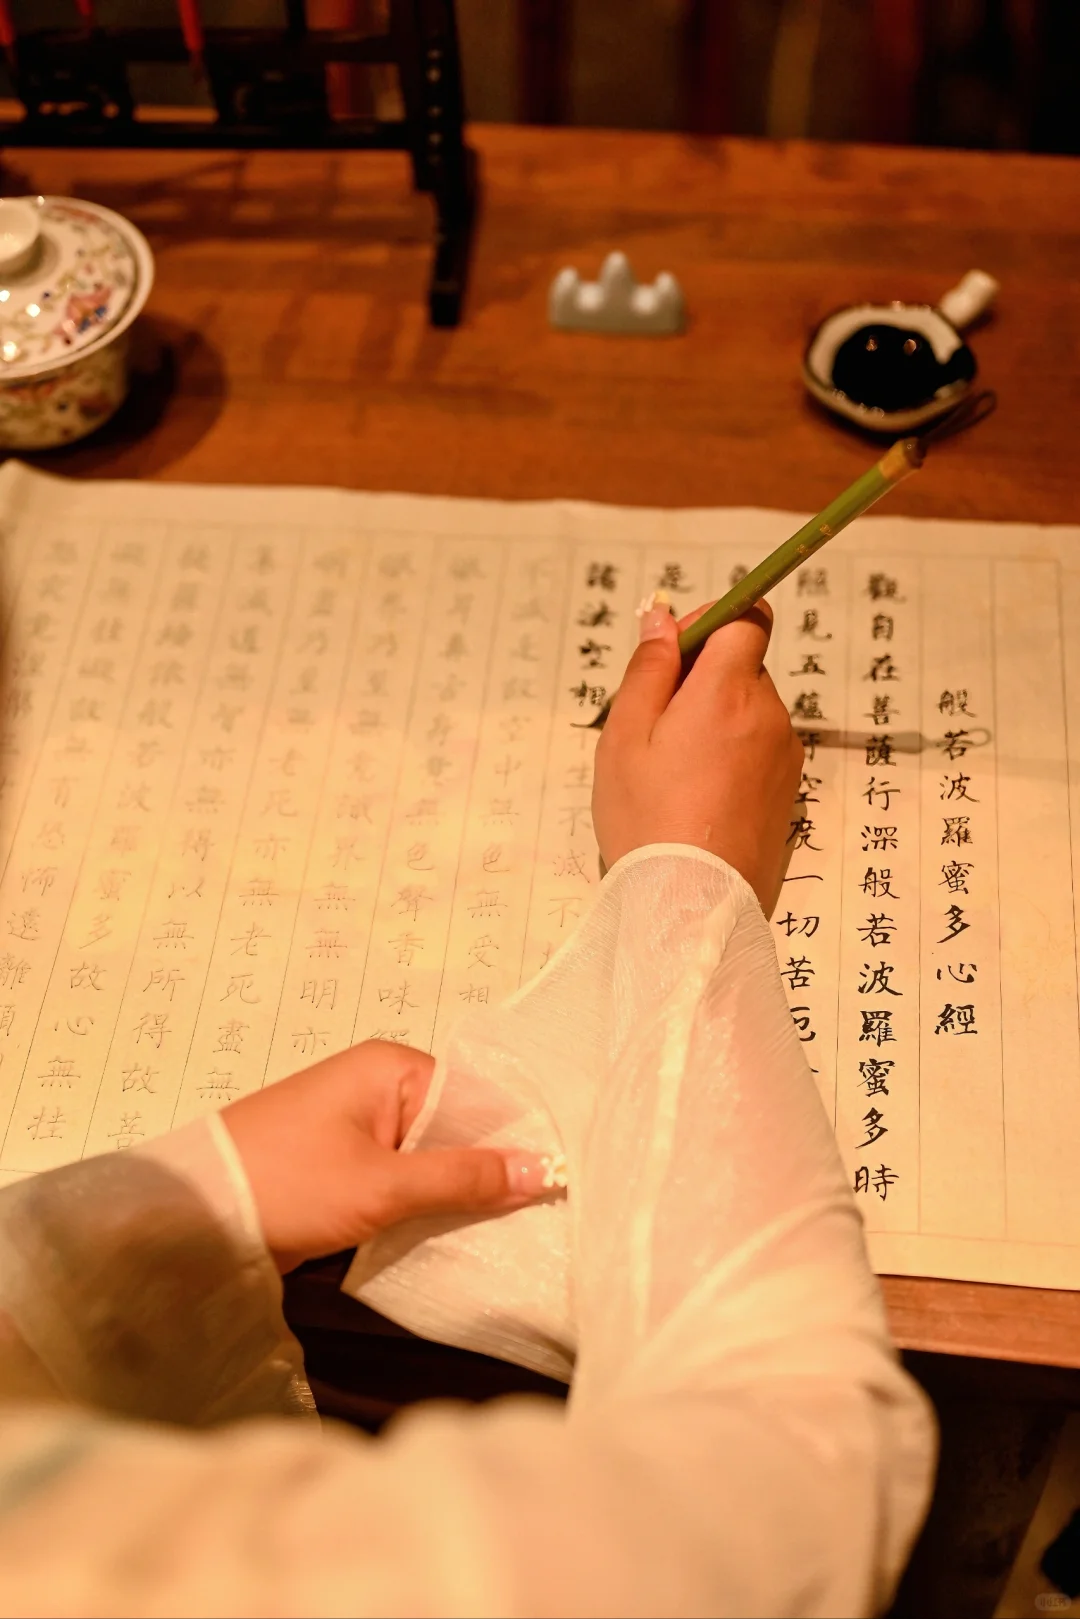 般若波羅蜜多心經
觀自在菩薩行深般若波羅蜜多時
照見五蘊皆空度一切苦厄
是
諸法空相不生不滅不
不減是故空中無色無受
眼耳鼻舌身意無色聲香味觸
眼界乃至無意識界無無明亦
明盡乃至無老死亦無老死盡無
集滅道無智亦無得以無所得故菩
提薩埵依般若波羅蜜多故心無挂
礙無挂礙故無有恐怖遠離顛
究竟涅槃三